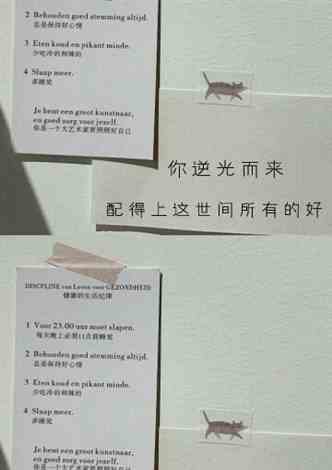 2 Behouden goed stemming altijd.
总是保持好心情
3 Eten koud en pikant minde.
少吃冷的和辣的
4 Slaap meer.
多睡觉
Je bent een groot kunstnaar,
en goed zorg voor jezelf.
你是一个大艺术家要照顾好自己
你逆光而来
配得上这世间所有的好
DISCIPLINE van Leven voor GEZONDHEID
健康的生活纪律
1 Voor 23.00 uur moet slapen.
每天晚上必须11点前睡觉
2 Behouden goed stemming altijd.
总是保持好心情
3 Eten koud en pikant minde.
少吃冷的和辣的
4 Slaap meer.
多睡觉
Je bent een groot kunstnaar,
en goed zorg voor jezelf.
你是一个大艺术家要照顾好自己